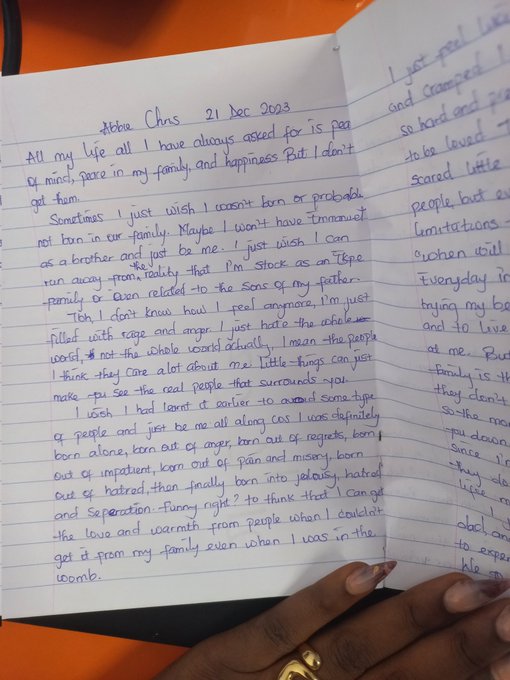 Abbie Chris 21 Dec 2023
All my life all I have always asked for is pea
of mind, peace in my family, and happiness But I don't
get them.
Sometimes I just wish I wasn't born or probably
not born in our family. Maybe I won't have Emmanuel
as a brother and just be me. I just wish I can
run away from the reality that I'm stock as an Ikpe
family or even related to the sons of my father.
Tbh, I don't know how I feel anymore, I'm just
filled with rage and anger. I just hate the whole
world, not the whole world actually, I mean the people
I think they care alot about me. Little things can just
make you see the real people that surrounds you.
I wish I had learnt it earlier to avoid some type
of people and just be me all along cos I was definitely
born alone, born out of anger, born out of regrets, born
out of impatient, born out of pain and misery, born
out of hatred, then finally born into jealousy, hatred
and seperation. Funny right? to think that I can get
the love and warmth from people when I couldn't
get it from my family even when I was in the
womb.
I just feel like
and cramped I
so hard and pre
to be loved
scared little
people, but ev
limitations
"when will
Everyday in
trying my be
and to live
at me. But
family is th
they don't
so the mo
you down
since I'm
they do
like m
I
dad, an
to exper